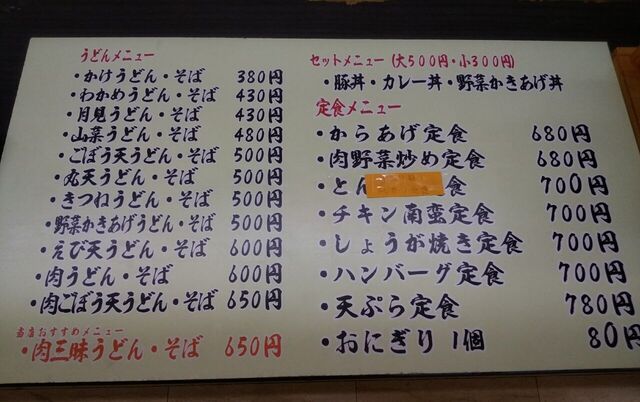 うどんメニュー
・かけうどん・そば 380円
・わかめうどん・そば 430円
・月見うどん・そば 430円
・山菜うどん・そば 480円
・ごぼう天うどん・そば 500円
・丸天うどん・そば 500円
・きつねうどん・そば 500円
・野菜かきあげうどん・そば 500円
・えび天うどん・そば 600円
・肉うどん・そば 600円
・肉ごぼう天うどん・そば 650円
当店おすすめメニュー
・肉三昧うどん・そば 650円
セットメニュー (大500円・小300円)
・豚丼・カレー丼・野菜かきあげ丼
定食メニュー
・からあげ定食 680円
・肉野菜炒め定食 680円
・とん 食 700円
・チキン南蛮定食 700円
・しょうが焼き定食 700円
・ハンバーグ定食 700円
・天ぷら定食 780円
・おにぎり 1個 80円